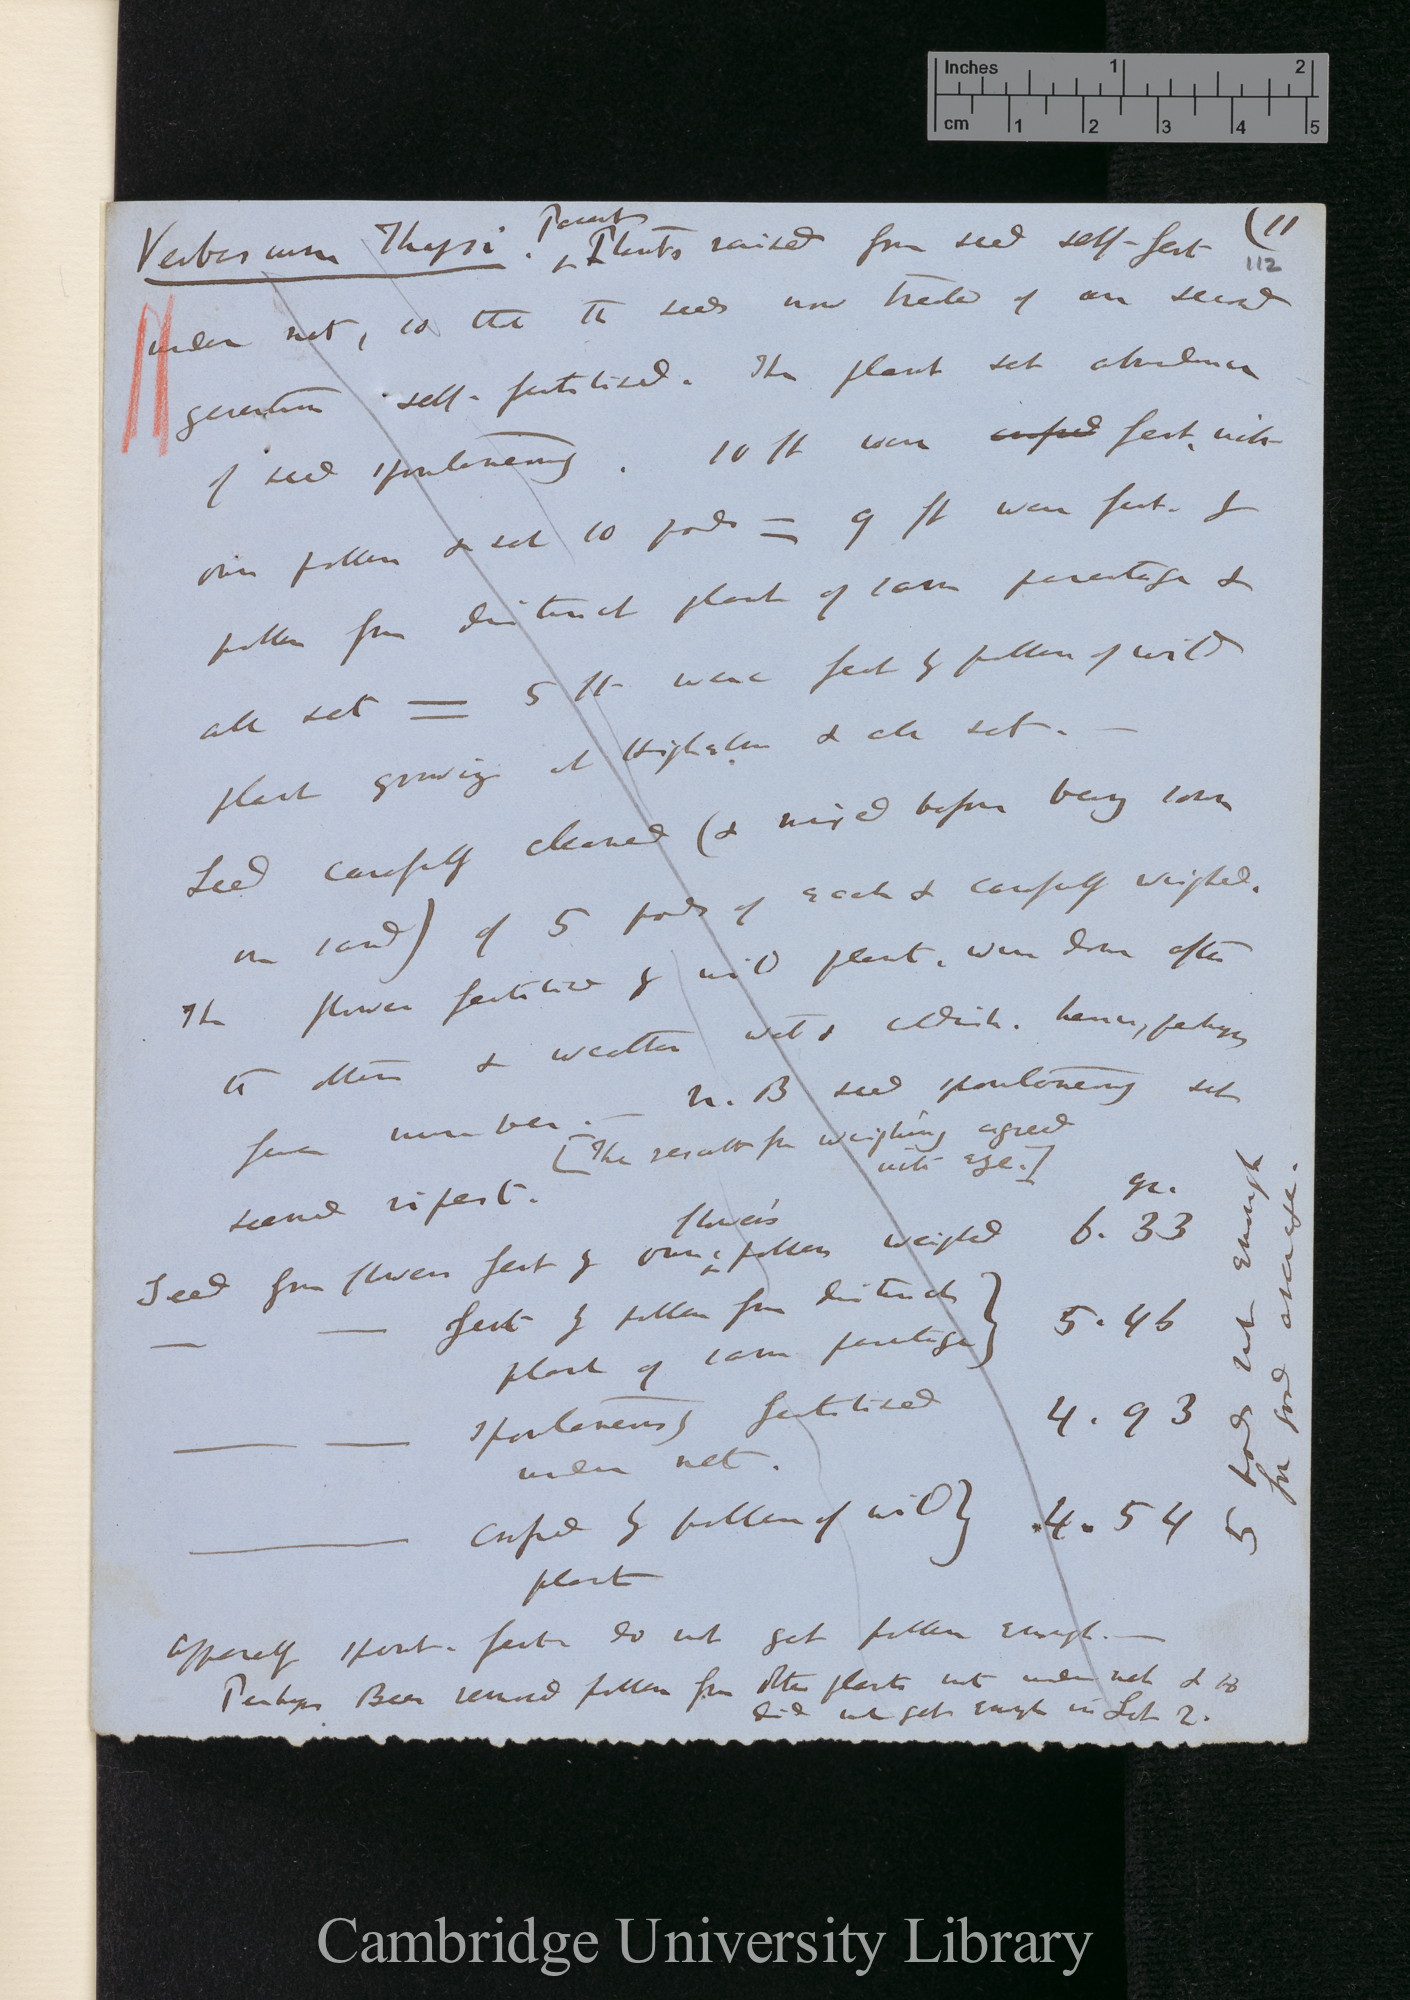 Inches 1 2
cm 1 2 3 4 5
(11
112
Verbascum Thapsi. Parent Plants raised from seed self-fert
under net, so that the seeds now treated of are second
generation self-fertilised. The plant set abundance
of seed spontaneously. 10 fl were crossed fert. with
own pollen & set 10 pods = 9 fl were fert. by
pollen from distinct plant of same parentage &
all set = 5 fl were fert by pollen of wild
plant growing at & all set. —
Seed carefully cleaned (& mixed before being sown
on sand) of 5 pods of each & carefully weighed.
The flowers fertilised by wild plant, were done after
the others & weather wet & coldish. hence, perhaps
fewer number. — N.B seed spontaneously set
[The result from weighing agreed
with eye.]
seemed ripest.
gr.
Seed from flowers fert by own flower's pollen weighed 6.33
— — fert by pollen from distinct
plant of same parentage} 5.46
— — spontaneously fertilised 4.93
under net.
— crossed by pollen of wild} .4.54
plant
5 pods not enough
for good average.
Apparently spont. fert. do not get pollen enough. —
Perhaps Bees removed pollen from other plants not under net & so
did not get enough in Lot 2.
Cambridge University Library